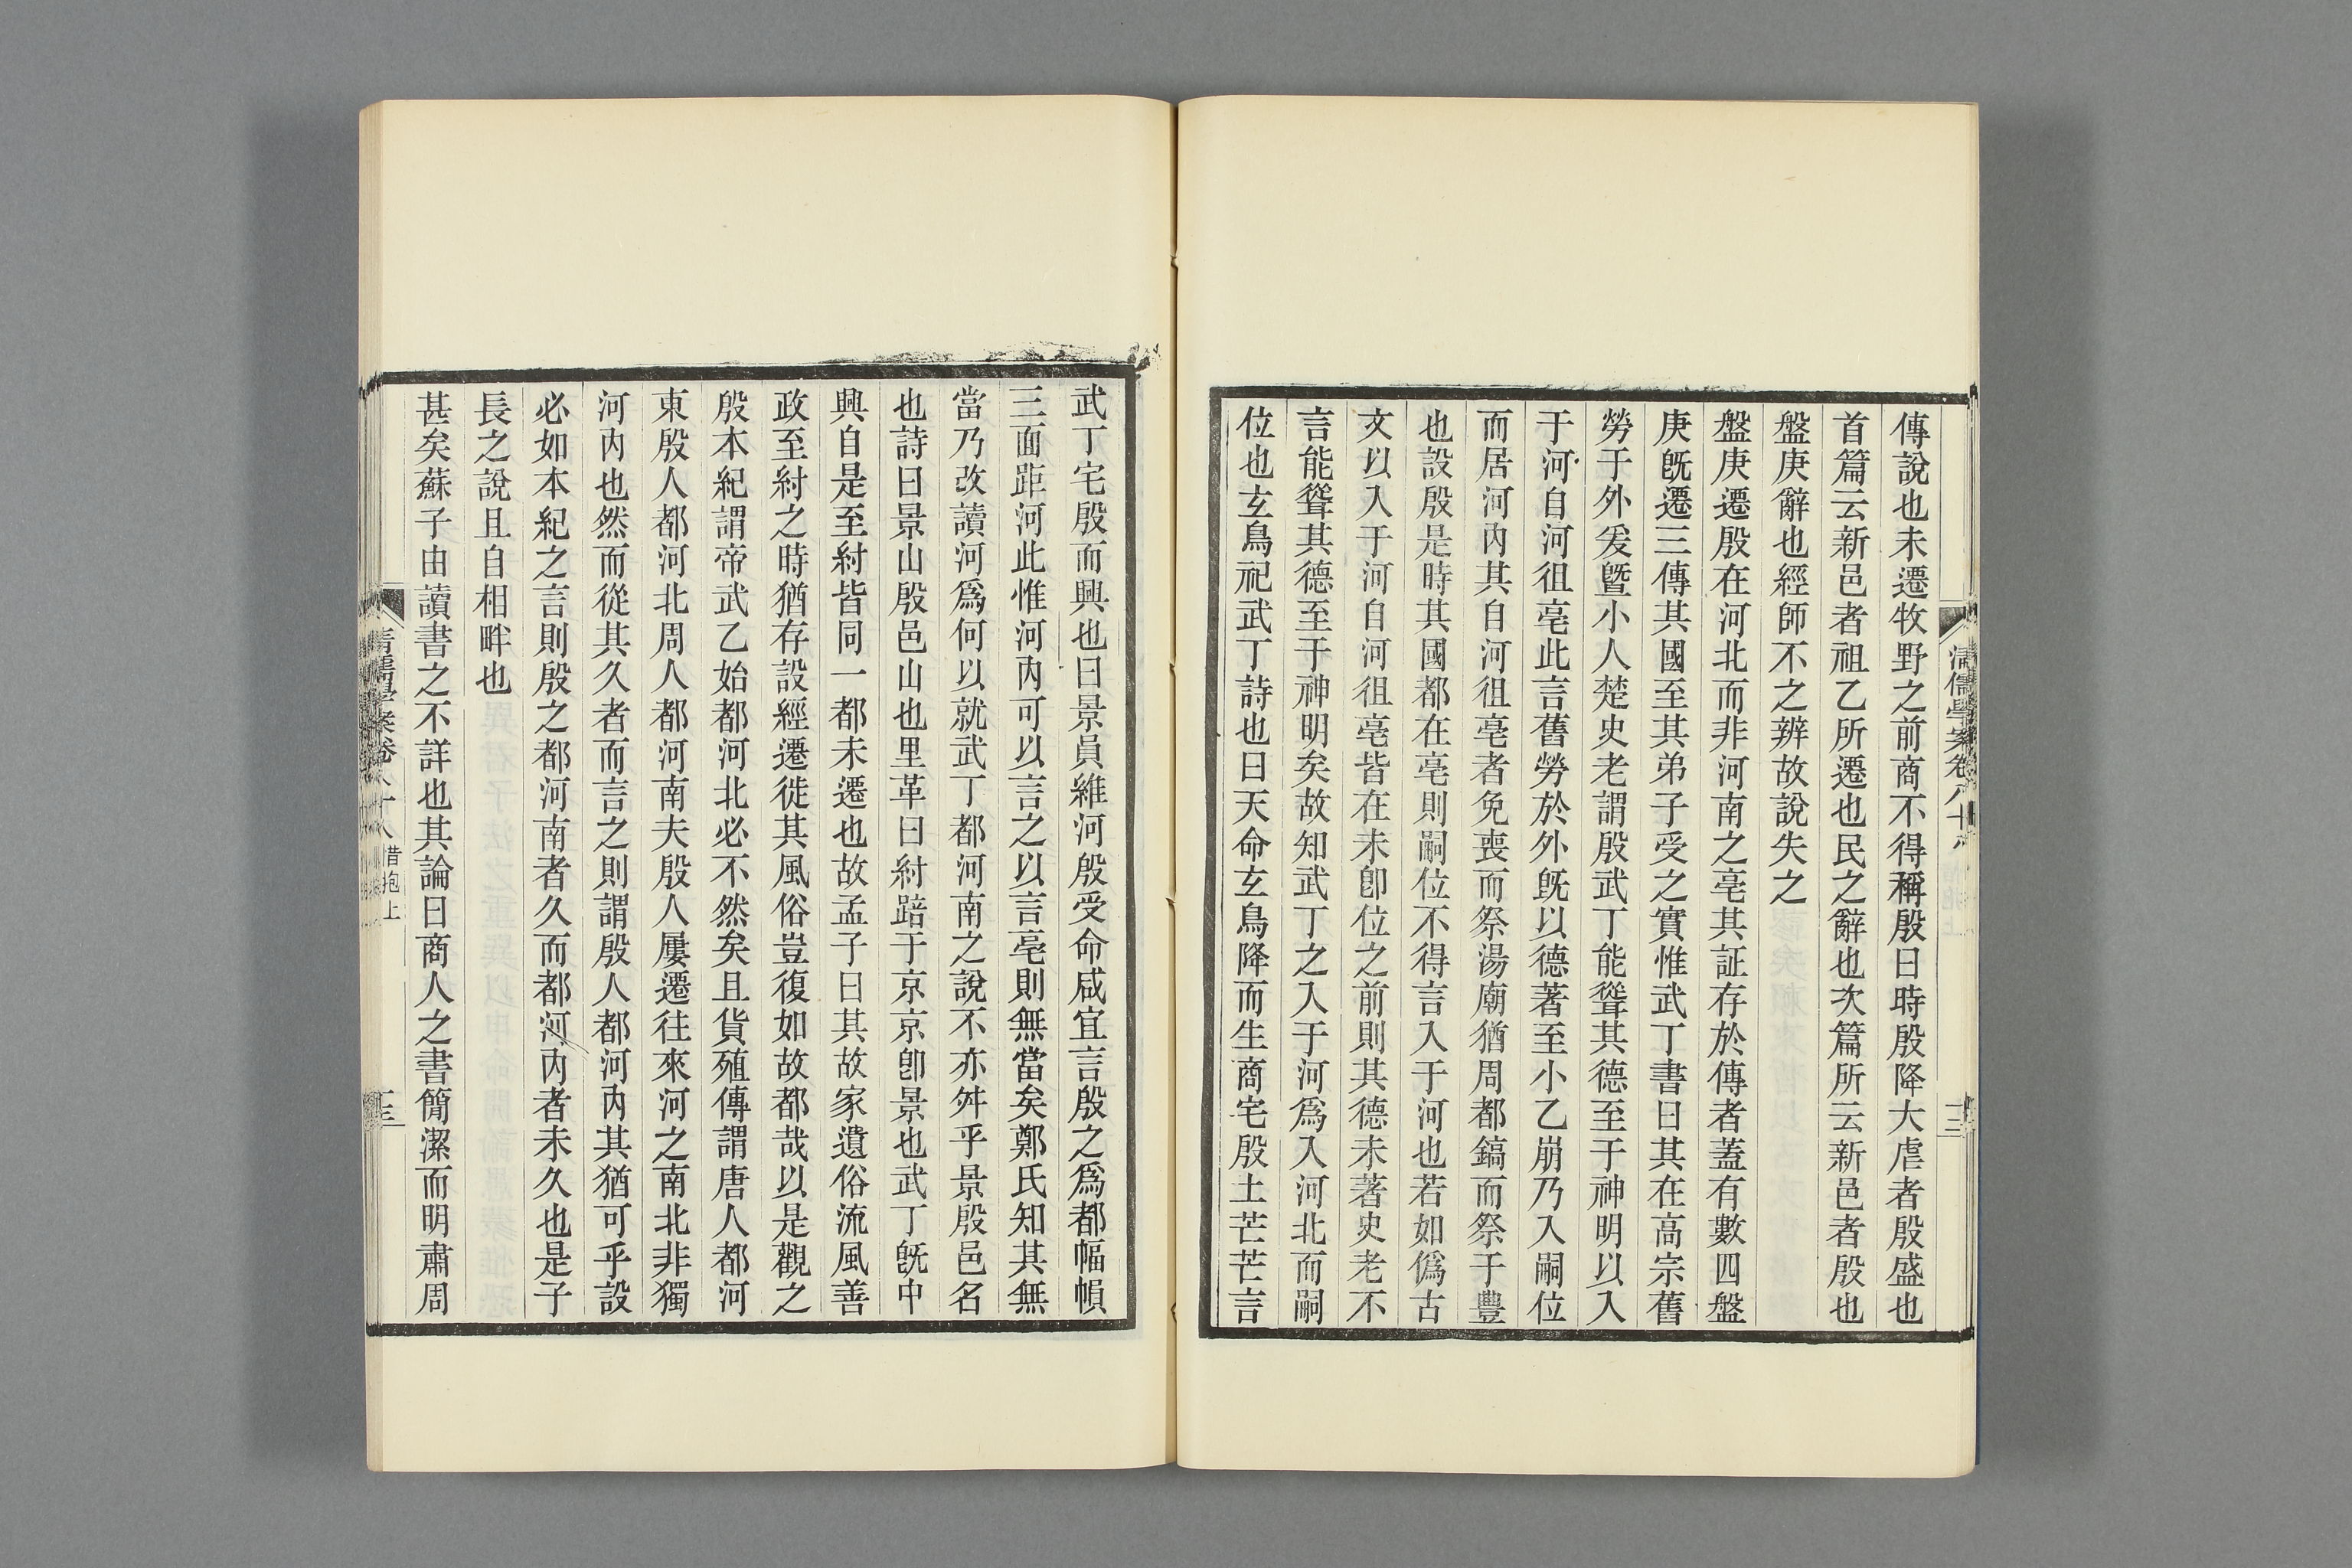 傳說也未遷牧野之前商不得稱殷曰時殷降大虐者殷盛也
首篇云新邑者祖乙所遷也民之辭也次篇所云新邑者殷也
盤庚辭也經師不之辨故說失之
盤庚遷殷在河北而非河南之亳其証存於傳者蓋有數四盤
庚旣遷三傳其國至其弟子受之實惟武丁書曰其在高宗舊
勞于外爰曁小人楚史老謂殷武丁能聳其德至于神明以入
于河自河徂亳此言舊勞於外旣以德著至小乙崩乃入嗣位
而居河內其自河徂亳者免喪而祭湯廟猶周都鎬而祭于豐
也設殷是時其國都在亳則嗣位不得言入于河也若如僞古
文以入于河自河徂亳皆在未卽位之前則其德未著史老不
言能聳其德至于神明矣故知武丁之入于河爲入河北而嗣
位也玄鳥祀武丁詩也曰天命玄鳥降而生商宅殷土芒芒言
武丁宅殷而興也曰景員維河殷受命咸宜言殷之爲都幅幀
三面距河此惟河內可以言之以言亳則無當矣鄭氏知其無
當乃改讀河爲何以就武丁都河南之說不亦舛乎景殷邑名
也詩曰景山殷邑山也里革曰紂踣于京京卽景也武丁旣中
興自是至紂皆同一都未遷也故孟子曰其故家遺俗流風善
政至紂之時猶存設經遷徙其風俗豈復如故都哉以是觀之
殷本紀謂帝武乙始都河北必不然矣且貨殖傳謂唐人都河
東殷人都河北周人都河南夫殷人屢遷往來河之南北非獨
河內也然而從其久者而言之則謂殷人都河內其猶可乎設
必如本紀之言則殷之都河南者久而都河內者未久也是子
長之說且自相畔也
甚矣蘇子由讀書之不詳也其論曰商人之書簡潔而明肅周
清儒學案卷八十八 惜抱上